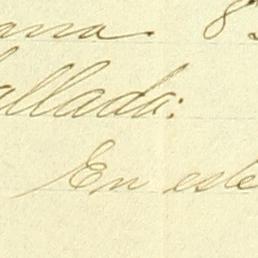 ana. 8
allada:
En este